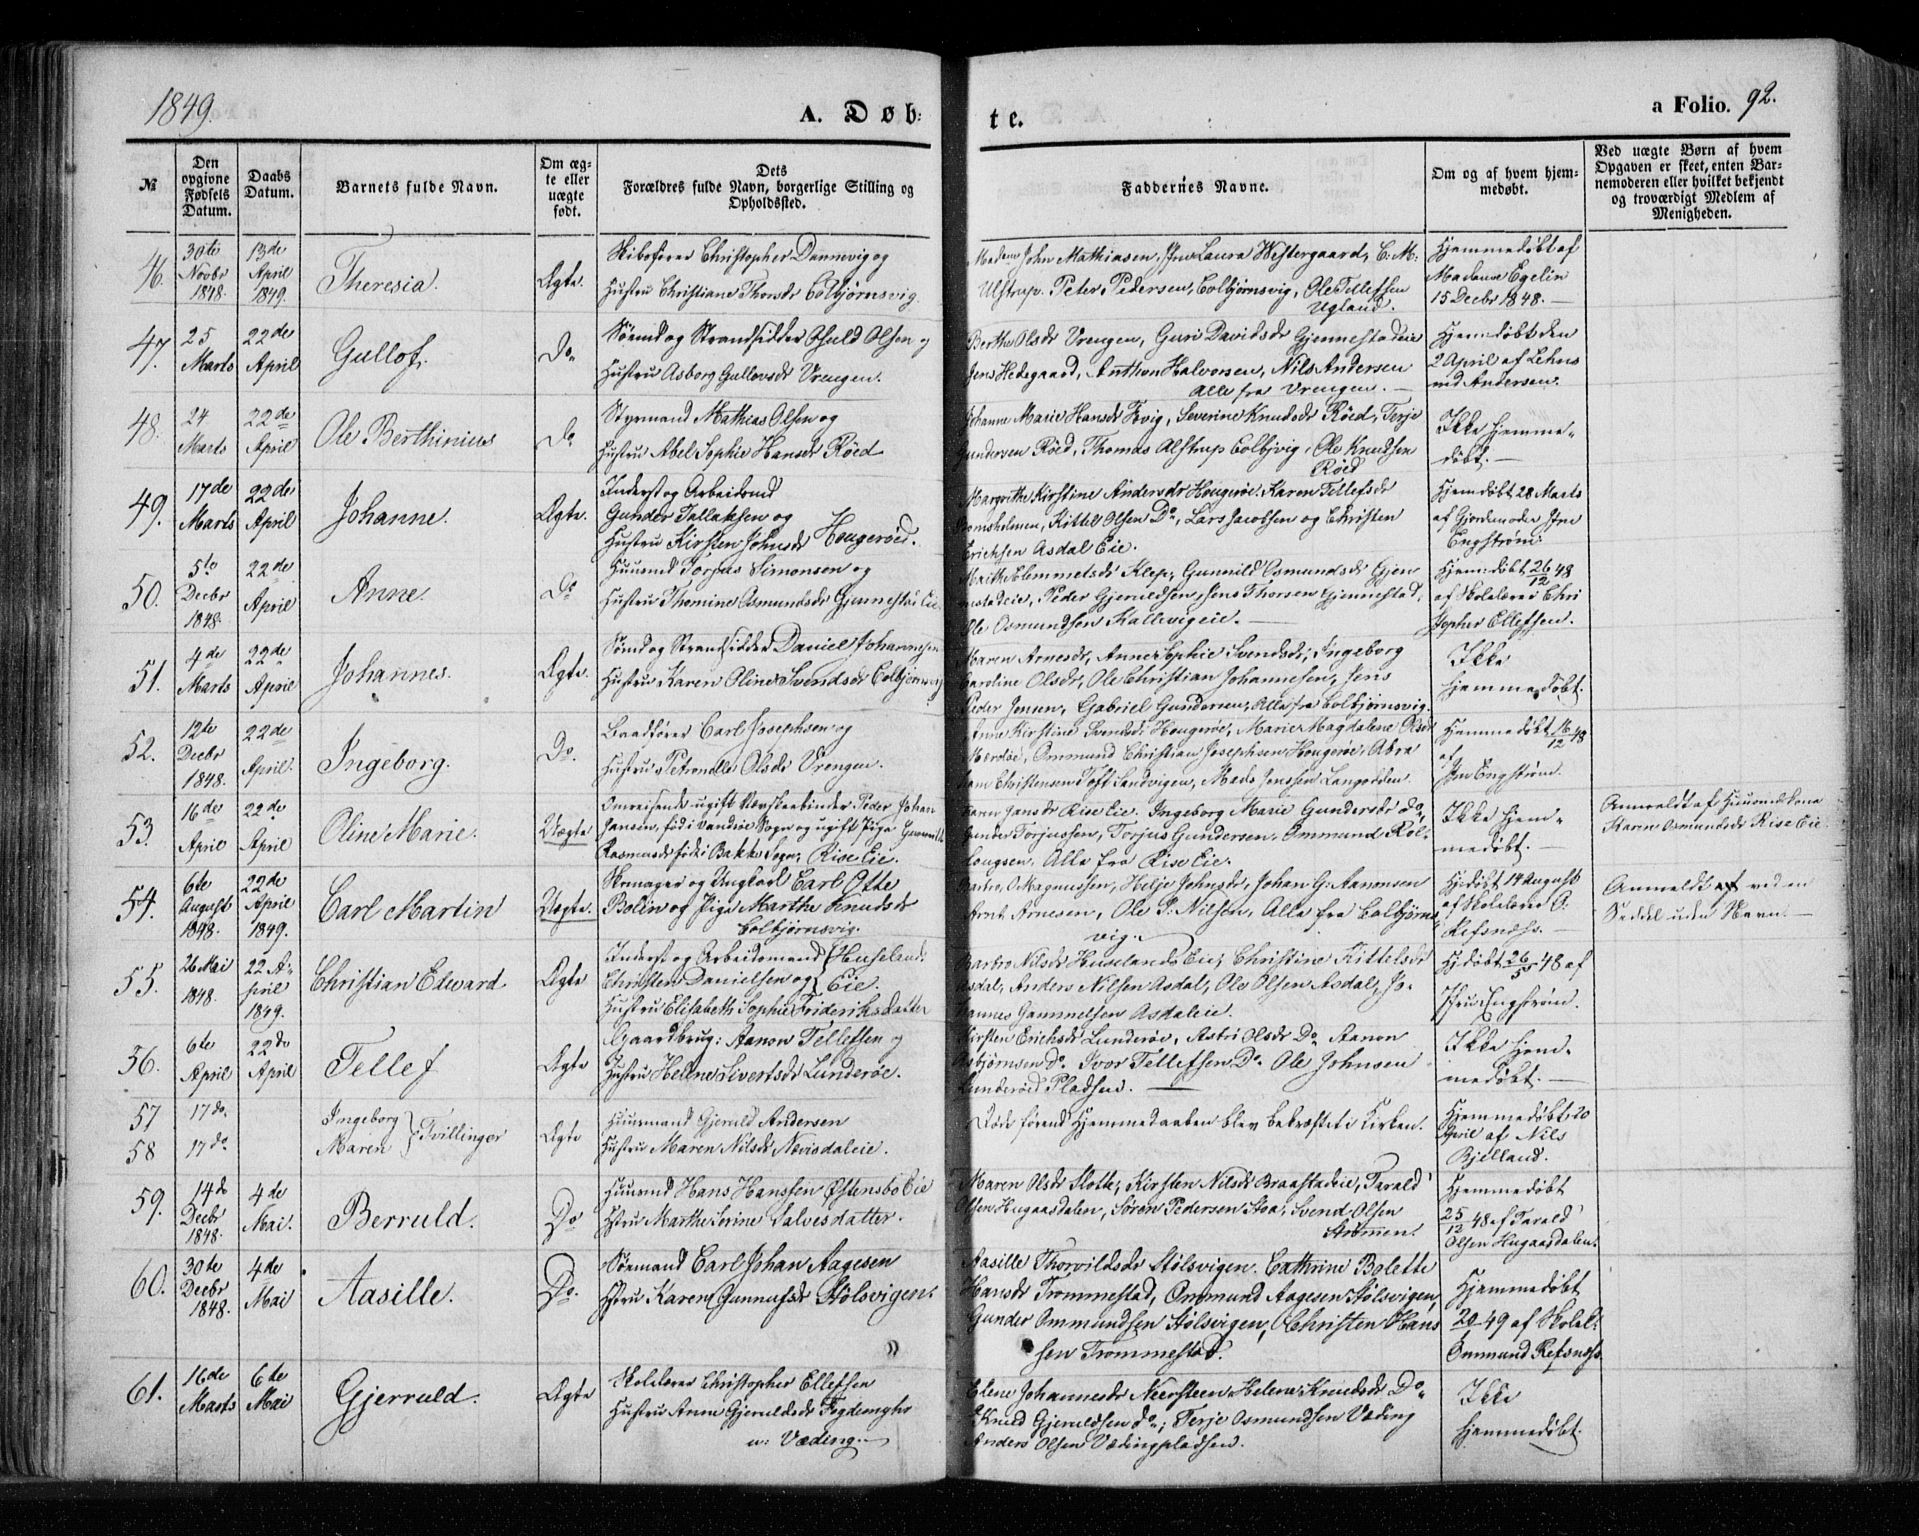 1849.
A. Døb-
te.
a Folio. 92.
№
Den opgivne Fødsels Datum.
Daabs Datum.
Barnets fulde Navn.
Om ægte eller uægte født.
Dets Forældres fulde Navn, borgerlige Stilling og Opholdssted.
Faddernes Navne.
Om og af hvem hjemmedøbt.
Ved uægte Børn af hvem Opgaven er skeet, enten Barnemoderen eller hvilket bekjendt og troværdigt Medlem af Menigheden.
46.
30te Novbr 1848.
13de April 1849.
Theresia.
Ægte.
Skibsfører Christopher Dannevig og
Hustru Christiane Thorsdr Colbjørnsvig.
John Mathiasen, Laura Westergaard, C. M.
Ulstrup. Peter Pedersen, Colbjørnsvig, Ole Tellefsen
Ugland.
Hjemmedøbt af
Madame Egelin
15 Decbr 1848.
47.
25 Marts
22de April
Gullof.
Do
Sømd og Strandsidder Osuld Olsen og
Hustru Asborg Gullovsdr Vrengen.
Berthe Olsdr Vrengen, Guri Davidsdr Gjennestadeie
Jens Hedegaard, Anthon Halvorsen, Nils Andersen
Alle fra Vrengen.
Hjemdøbt den
2 April af Lehns
md Andersen.
48.
24 Marts
22de April
Ole Berthinius
Do
Styrmand Mathias Olsen og
Hustru Abel Sophie Hansdr Røed
Johanne Marie Hansdr Ivig, Severine Knudsdr Røed, Terje
Gundersen Røed, Thomas Alstrup Colbjvig, Ole Knudsen
Røed
Ikke hjemme-
døbt.
49.
17de Marts
22de April
Johanne.
Ægte.
Inderst og Arbeidsmd
Gunder Tallaksen og
Hustru Kirsten Johnsdr Hougerøed.
Margrithe Kirstine Andersdr Hougerøe, Karen Tellefsdr
Kittel Olsen Do, Lars Jacobsen og Christen
Erichsen Asdal Eie.
Hjemdøbt 28 Marts
af Gjordemoder
Engstrøm
50.
5te Decbr 1848.
22de April
Anne.
Do
Huusmd Torjus Simonsen og
Hustru Thomine Osmundsdr Gjennestad Eie
Marthe Clemmetsdr Klep, Gunnild Osmundsdr Gjen
nestadeie, Peder Gjeruldsen, Jens Thorsen Gjennestad,
Ole Osmundsen Kallevigeie.
Hjem: døbt 26/12 48
af Skolelærer Chri
stopher Ellefsen.
51.
4de Marts
22de April
Johannes.
Ægte.
Sømd og Strandsidder Daniel Johannesen
Hustru Karen Oline Svendsdr Colbjørnsvig
Maren Arnesdr, Anne Sophie Svendsdr, Ingeborg
Caroline Olsdr, Ole Christian Johannesen, Jens
Peder Jensen, Gabriel Gundersen, Alle fra Colbjørnsvig.
Ikke
hjemmedøbt.
52.
12te Decbr 1848.
22de April.
Ingeborg.
Do.
Baadfører Carl Josephsen og
Hustru Petronelle Olsdr Vrengen.
Anne Kirstine Svendsdr Hougerøe, Marie Magdalene Olsdr
Mærdøe, Ommund Christian Josephsen Hougerøe, Abra
ham Christensen Toft Sandvigen, Mads Jonsen Langodden
Hjemmedøbt 16/12 48
af
Engstrøm.
53.
16de April
22de April
Oline Marie.
Uægte
Omreisende ugift Kurvskaebinder Peder Johan
Jansen, født i Vandsøe Sogn og ugift Pige Gunnild
Rasmusdr født i Bakke Sogn, Rise Eie.
Karen Jansdr Rise Eie. Ingeborg Marie Gundersdr Do,
Gunder Torjussen, Torjus Gundersen, Ommund Rol-
lougsen, Alle fra Rise Eie.
Ikke hjem-
medøbt.
Anmeldt af Huusmdskone
Karen Osmundsdr Rise Eie
54.
6te August 1848.
22de April 1849.
Carl Martin
Uægte.
Skomager og Ungkarl Carl Otte
Bolin og Pige Marthe Knudsdr
Colbjørnsvig.
Barbro O. Magnussen, Helje Johnsdr, Johan G. Aanonsen
Arnt Arnesen, Ole S. Nilsen, Alle fra Colbjørns
vig.
Hjdøbt 14 August
af Skolelærer O.
Refsnæss.
Anmeldt ved en
Seddel uden Navn.
55.
26 Mai 1848.
22 April 1849.
Christian Edward
Ægte
Inderst og Arbeidsmand
Christen Danielsen og Huselands Eie.
Hustru Elisabeth Sophie Frideriksdatter
Barbro Nilsdr Huselands Eie, Christine Kittelsdr
Asdal, Anders Nilsen Asdal, Ole Olsen Asdal, Jo-
hannes Gammelsen Asdaleie.
Hjdøbt 26/5 48 af
Fru Engstrøm.
56.
6te April
22de April
Tellef
Ægte
Gaardbrug: Aanon Tellefsen og
Hustru Helene Sivertsdr Lunderøe.
Kirsten Erichsdr Lunderøe, Astri Olsdr Do Aanon
Asbjørnsen Do. Ivor Tellefsen Do Ole Johnsen
Lunderød Pladsen.
Ikke hjem-
medøbt.
57
17do.
58
17do
Ingeborg
Maren
Tvillinger
Ægte
Huusmand Gjeruld Andersen
Hustru Maren Nilsdr Nævisdaleie.
Døde førend Hjemmedaaben blev bekræftet i Kirken.
Hjemmedøbt 20
April af Nils
Bjelland.
59.
14do Decbr 1848.
4de Mai.
Berruld.
Do
Huusmd Hans Hanssen Østensbø Eie
Hstru Marthe Serine Salvesdatter.
Maren Olsdr Slotte, Kirsten Nilsdr Braastadeie, Tarald
Olsen Hugaasdalen, Søren Pedersen Stoa, Svend Olsen
Strømmen.
Hjemmedøbt
25/12 48 af Tarald
Olsen Hugaasdalen.
60.
30te Decbr 1848.
4de Mai
Aasille.
Do.
Sømand Carl Johan Aagesen
Hstru Karen Gunnufsdr Stølsvigen.
Aasille Thorvildsdr Stølsvigen. Cathrine Bolette
Hansdr Trommestad, Ommund Aagesen Stølsvigen,
Gunder Ommundsen Stølsvigen, Christen Hans
sen Trommestad.
Hjemmedøbt
49 af Skolel.
Ommund Refsnæss.
61.
16de Marts
6te Mai
Gjerruld.
Ægte
Skolelærer Christopher Ellefsen
Hustru Anne Gjeruldsdr
u: Væding.
Elene Johannesdr Neersteen, Helene Knudsdr Do.
Knud Gjeruldsen do; Terje Osmundsen Væding
Anders Olsen Vædingpladsen.
Ikke
hjemmedøbt.